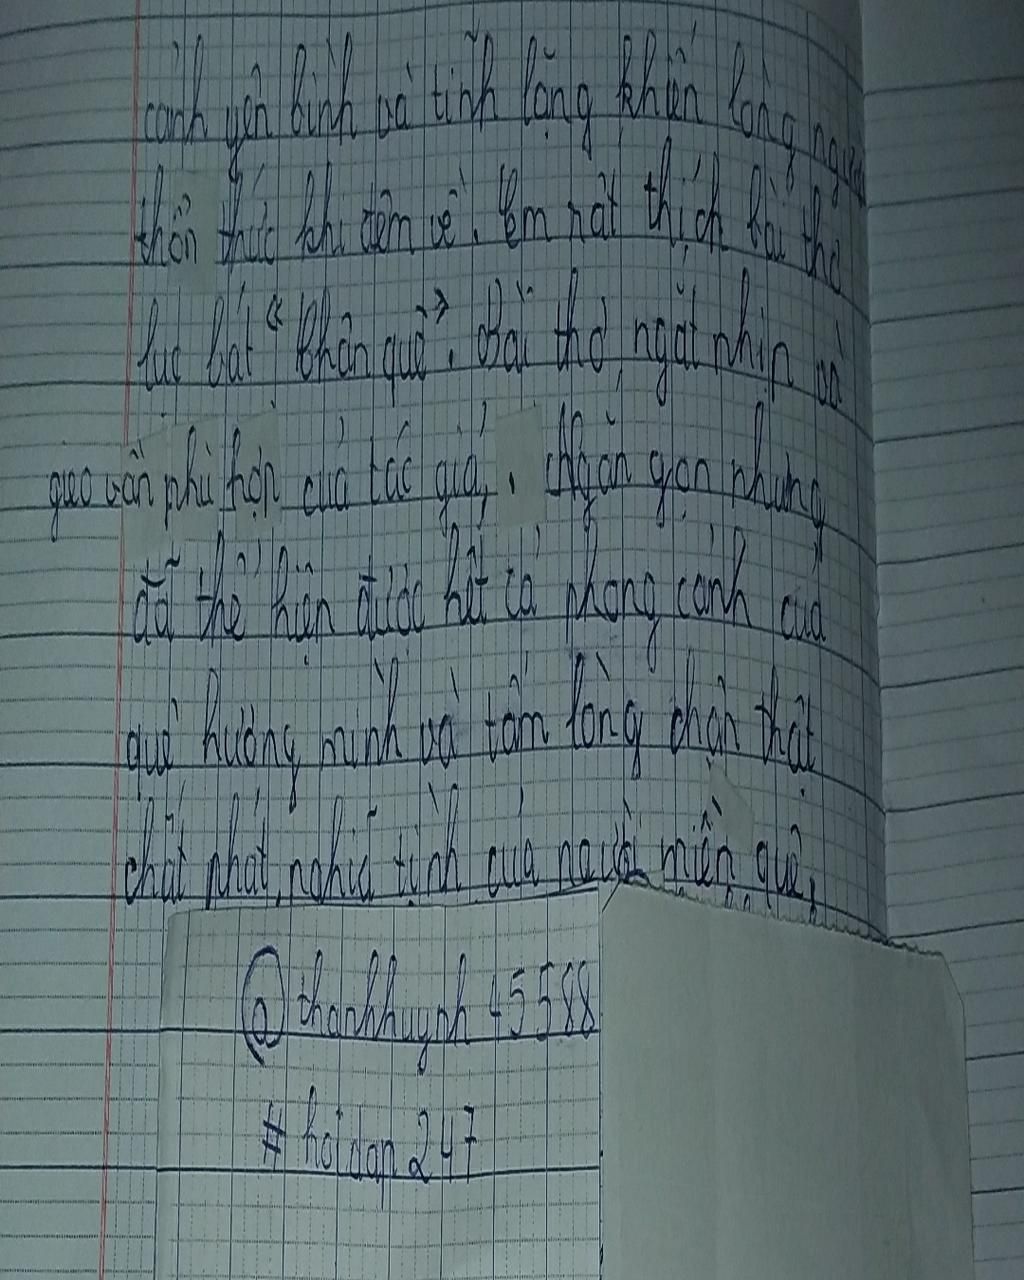 cảnh yên bình và tĩnh lặng khiến lòng người
thổn thức khi đêm về. Em rất thích bài thơ
lục bát “Chân quê”. Bài thơ ngắt nhịp và
gieo vần phù hợp của tác giả, . Ngắn gọn nhưng
đã thể hiện được hết cả phong cảnh của
quê hương mình và tấm lòng chân thật
chất phát, nghĩa tình của người miền quê,
@ thanhhuynh 45588
# hoidap 247